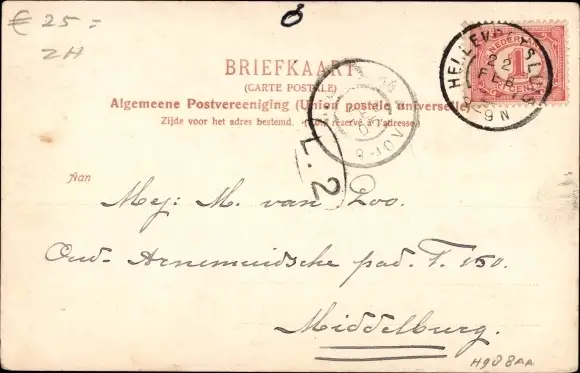 € 25 =
ZH
BRIEFKAART
(CARTE POSTALE)
Algemeene Postvereeniging (Union postale universelle)
Zijde voor het adres bestemd. (Côté réservé à l'adresse)
HELLEVOETSLUIS
22
FEB
8-9N
NEDERLAND
1
L. 2
Aan
Mej: M. van Poo.
Oud-Arnemuidsche pad. F. 150.
Middelburg.
H988AA